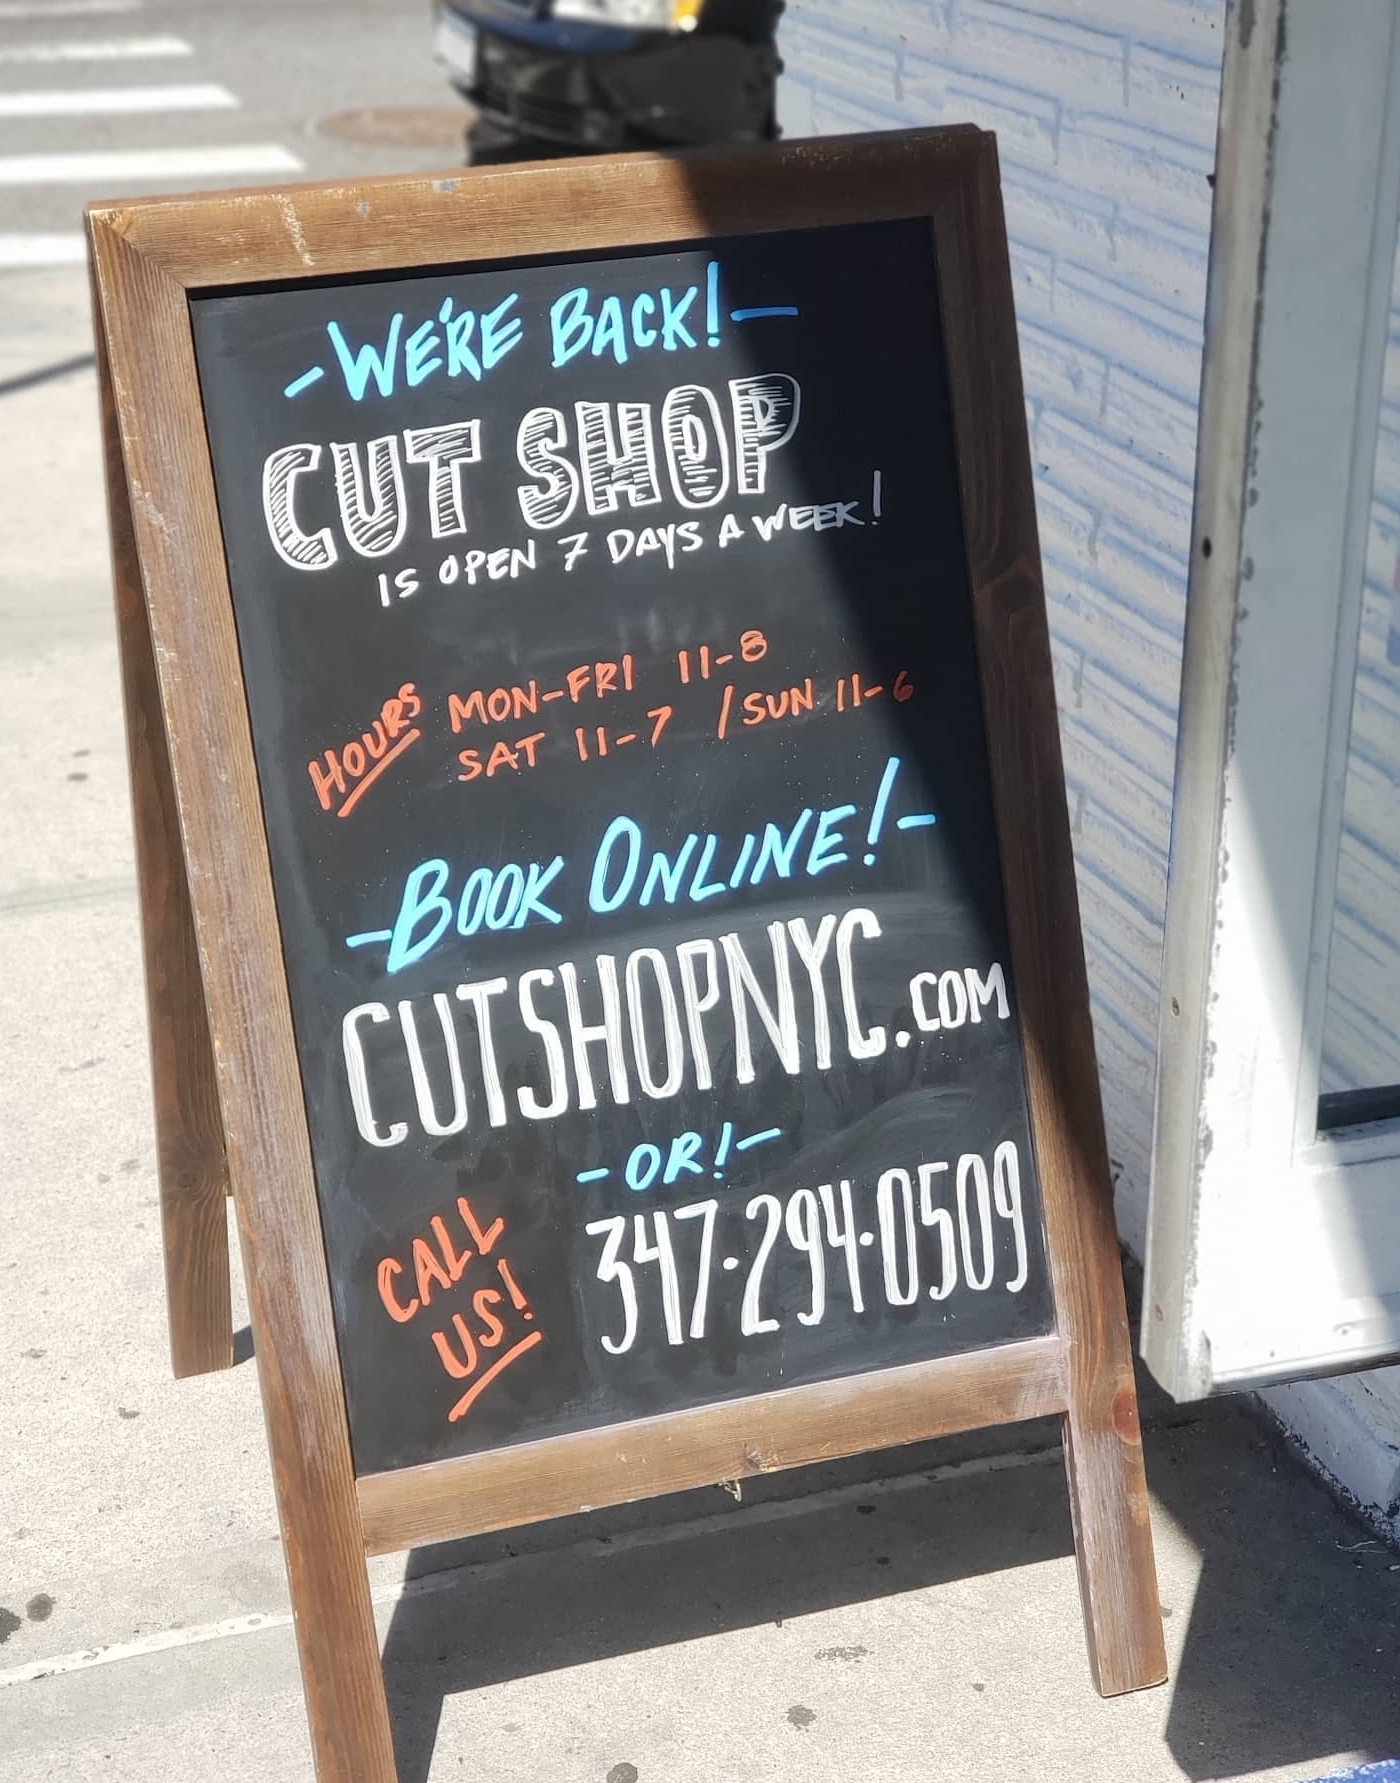 -WE'RE BACK!-
CUT SHOP
IS OPEN 7 DAYS A WEEK!
HOURS MON-FRI 11-8
SAT 11-7 / SUN 11-6
-BOOK ONLINE!-
CUTSHOPNYC.COM
-OR!-
CALL
US!
347·294·0509